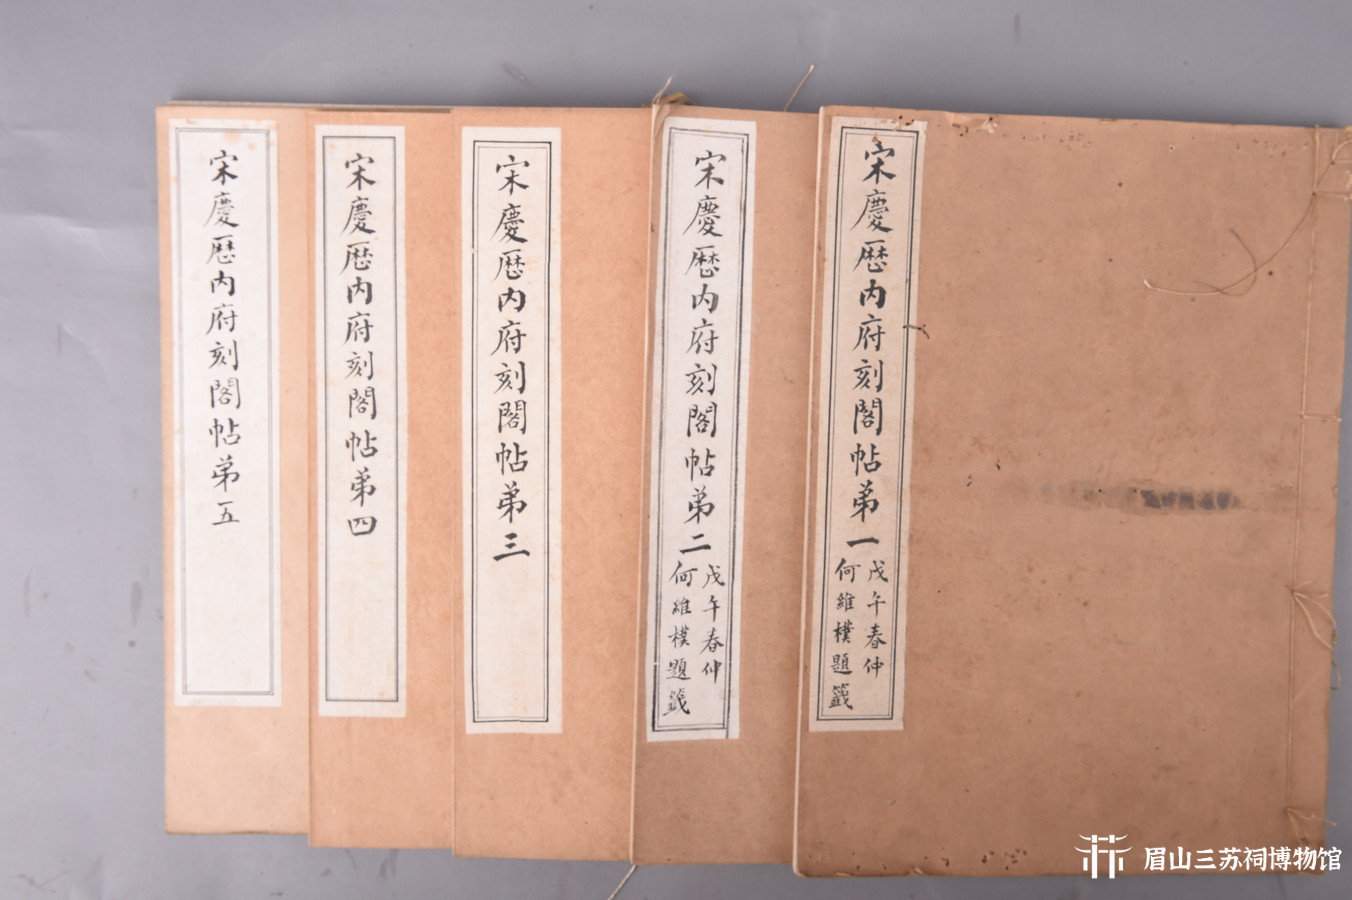 宋慶歷内府刻閣帖弟一
戊午春仲
何維樸題籤
宋慶歷内府刻閣帖弟二
戊午春仲
何維樸題籤
宋慶歷内府刻閣帖弟三
宋慶歷内府刻閣帖弟四
宋慶歷内府刻閣帖弟五
眉山三苏祠博物馆